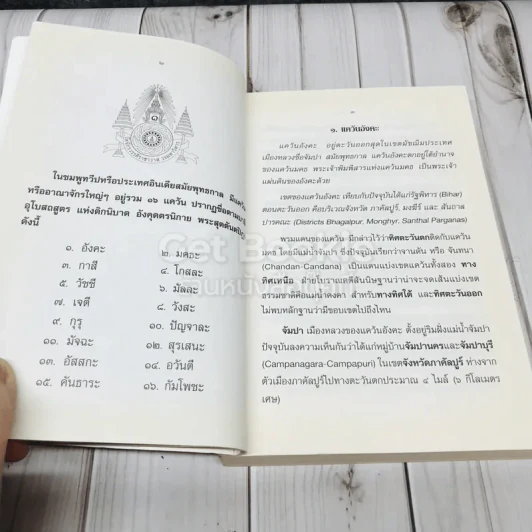 ๒
ในชมพูทวีปหรือประเทศอินเดียสมัยพุทธกาล มีแคว้น
หรืออาณาจักรใหญ่ๆ อยู่รวม ๑๖ แคว้น ปรากฏชื่อตามบาลี
อุโบสถสูตร แห่งติกนิบาต อังคุตตรนิกาย พระสุตตันตปิฎก
ดังนี้
๑. อังคะ ๒. มคธะ
๓. กาสี ๔. โกสละ
๕. วัชชี ๖. มัลละ
๗. เจตี ๘. วังสะ
๙. กุรุ ๑๐. ปัญจาละ
๑๑. มัจฉะ ๑๒. สุรเสนะ
๑๓. อัสสกะ ๑๔. อวันตี
๑๕. คันธาระ ๑๖. กัมโพชะ
๓
๑. แคว้นอังคะ
แคว้นอังคะ อยู่ตะวันออกสุดในเขตมัชฌิมประเทศ
เมืองหลวงชื่อจัมปา สมัยพุทธกาล แคว้นอังคะตกอยู่ใต้อำนาจ
ของแคว้นมคธ พระเจ้าพิมพิสารแห่งแคว้นมคธ เป็นพระเจ้า
แผ่นดินของอังคะด้วย
เขตของแคว้นอังคะ เทียบกับปัจจุบันได้แก่รัฐพิหาร (Bihar)
ตอนตะวันออก คือบริเวณจังหวัด ภาคัลปูร์, มงฆีร์ และ สันถาล
ปารคณะ (Districts Bhagalpur, Monghyr, Santhal Parganas)
พรมแดนของแคว้น มีกล่าวไว้ว่าทิศตะวันตกติดกับแคว้นมคธ
โดยมีแม่น้ำจัมปา ซึ่งปัจจุบันเรียกว่าจานดัน หรือ จันทนา
(Chandan-Candana) เป็นแดนแบ่งเขตแคว้นทั้งสอง ทาง
ทิศเหนือ ชายโบราณคดีสันนิษฐานว่าน่าจะจดเส้นแบ่งเขต
ธรรมชาติคือแม่น้ำคงคา สำหรับทางทิศใต้ และทิศตะวันออก
ไม่พบหลักฐานว่ามีขอบเขตไปถึงไหน
จัมปา เมืองหลวงของแคว้นอังคะ ตั้งอยู่ริมฝั่งแม่น้ำจัมปา
ปัจจุบันลงความเห็นกันว่าได้แก่หมู่บ้านจัมปานคระและจัมปาปุรี
(Campanagara-Campapuri) ในเขตจังหวัดภาคัลปูร์ ห่างจาก
ตัวเมืองภาคัลปูร์ไปทางตะวันตกประมาณ ๔ ไมล์ (๖ กิโลเมตร
เศษ)
Get Books